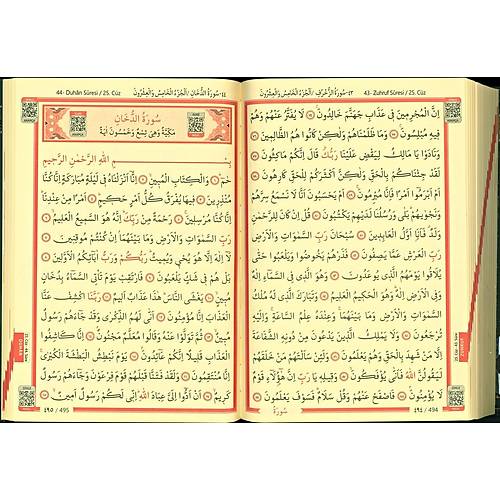 43- Zuhruf Sûresi / 25. Cüz
٤٣-سُورَةُ الزُّخْرُفِ /اَلْجُزْءُ الْخَامِسُ وَالْعِشْرُونَ
اِنَّ الْمُجْرِمٖينَ فٖى عَذَابِ جَهَنَّمَ خَالِدُونَۚ لَا يُفَتَّرُ عَنْهُمْ وَهُمْ
فٖيهِ مُبْلِسُونَۚ وَمَا ظَلَمْنَاهُمْ وَلٰكِنْ كَانُوا هُمُ الظَّالِمٖينَ
وَنَادَوْا يَا مَالِكُ لِيَقْضِ عَلَيْنَا رَبُّكَۜ قَالَ اِنَّكُمْ مَاكِثُونَ
لَقَدْ جِئْنَاكُمْ بِالْحَقِّ وَلٰكِنَّ اَكْثَرَكُمْ لِلْحَقِّ كَارِهُونَ
اَمْ اَبْرَمُٓوا اَمْرًا فَاِنَّا مُبْرِمُونَۚ اَمْ يَحْسَبُونَ اَنَّا لَا نَسْمَعُ سِرَّهُمْ
وَنَجْوٰيهُمْۜ بَلٰى وَرُسُلُنَا لَدَيْهِمْ يَكْتُبُونَ قُلْ اِنْ كَانَ لِلرَّحْمٰنِ
وَلَدٌۗ فَاَنَا۬ اَوَّلُ الْعَابِدٖينَ سُبْحَانَ رَبِّ السَّمٰوَاتِ وَالْاَرْضِ
رَبِّ الْعَرْشِ عَمَّا يَصِفُونَ فَذَرْهُمْ يَخُوضُوا وَيَلْعَبُوا حَتّٰى
يُلَاقُوا يَوْمَهُمُ الَّذٖى يُوعَدُونَ وَهُوَ الَّذٖى فِى السَّمَٓاءِ اِلٰهٌ
وَفِى الْاَرْضِ اِلٰهٌۜ وَهُوَ الْحَكٖيمُ الْعَلٖيمُ وَتَبَارَكَ الَّذٖى لَهُ مُلْكُ
السَّمٰوَاتِ وَالْاَرْضِ وَمَا بَيْنَهُمَاۚ وَعِنْدَهُ عِلْمُ السَّاعَةِۚ وَاِلَيْهِ
تُرْجَعُونَ وَلَا يَمْلِكُ الَّذٖينَ يَدْعُونَ مِنْ دُونِهِ الشَّفَاعَةَ
اِلَّا مَنْ شَهِدَ بِالْحَقِّ وَهُمْ يَعْلَمُونَ وَلَئِنْ سَاَلْتَهُمْ مَنْ خَلَقَهُمْ
لَيَقُولُنَّ اللّٰهُ فَاَنّٰى يُؤْفَكُونَۙ وَقٖيلِهٖ يَا رَبِّ اِنَّ هٰٓؤُ۬لَٓاءِ قَوْمٌ
لَا يُؤْمِنُونَۢ فَاصْفَحْ عَنْهُمْ وَقُلْ سَلَامٌۜ فَسَوْفَ يَعْلَمُونَ
٤٩٤ / 494
سُورَةُ
44- Duhân Sûresi / 25. Cüz
٤٤-سُورَةُ الدُّخَانِ /اَلْجُزْءُ الْخَامِسُ وَالْعِشْرُونَ
سُورَةُ الدُّخَانِ
مَكِّيَّةٌ وَهِىَ تِسْعٌ وَخَمْسُونَ اٰيَةً
بِسْمِ اللّٰهِ الرَّحْمٰنِ الرَّحٖيمِ
حٰمٓۜ وَالْكِتَابِ الْمُبٖينِۙ اِنَّٓا اَنْزَلْنَاهُ فٖى لَيْلَةٍ مُبَارَكَةٍ اِنَّا كُنَّا
مُنْذِرٖينَ فٖيهَا يُفْرَقُ كُلُّ اَمْرٍ حَكٖيمٍۙ اَمْرًا مِنْ عِنْدِنَاۜ
اِنَّا كُنَّا مُرْسِلٖينَۚ رَحْمَةً مِنْ رَبِّكَۜ اِنَّهُ هُوَ السَّمٖيعُ الْعَلٖيمُۙ
رَبِّ السَّمٰوَاتِ وَالْاَرْضِ وَمَا بَيْنَهُمَاۢ اِنْ كُنْتُمْ مُوقِنٖينَ
لَٓا اِلٰهَ اِلَّا هُوَ يُحْيٖى وَيُمٖيتُۜ رَبُّكُمْ وَرَبُّ اٰبَٓائِكُمُ الْاَوَّلٖينَ
بَلْ هُمْ فٖى شَكٍّ يَلْعَبُونَ فَارْتَقِبْ يَوْمَ تَاْتِى السَّمَٓاءُ بِدُخَانٍ
مُبٖينٍۙ يَغْشَى النَّاسَۜ هٰذَا عَذَابٌ اَلٖيمٌ رَبَّنَا اكْشِفْ عَنَّا
الْعَذَابَ اِنَّا مُؤْمِنُونَ اَنّٰى لَهُمُ الذِّكْرٰى وَقَدْ جَٓاءَهُمْ رَسُولٌ
مُبٖينٌۙ ثُمَّ تَوَلَّوْا عَنْهُ وَقَالُوا مُعَلَّمٌ مَجْنُونٌۢ اِنَّا كَاشِفُوا
الْعَذَابِ قَلٖيلًا اِنَّكُمْ عَٓائِدُونَۢ يَوْمَ نَبْطِشُ الْبَطْشَةَ الْكُبْرٰىۚ
اِنَّا مُنْتَقِمُونَ وَلَقَدْ فَتَنَّا قَبْلَهُمْ قَوْمَ فِرْعَوْنَ وَجَٓاءَهُمْ رَسُولٌ
كَرٖيمٌۙ اَنْ اَدُّٓوا اِلَىَّ عِبَادَ اللّٰهِۜ اِنّٖى لَكُمْ رَسُولٌ اَمٖينٌۙ
٤٩٥ / 495